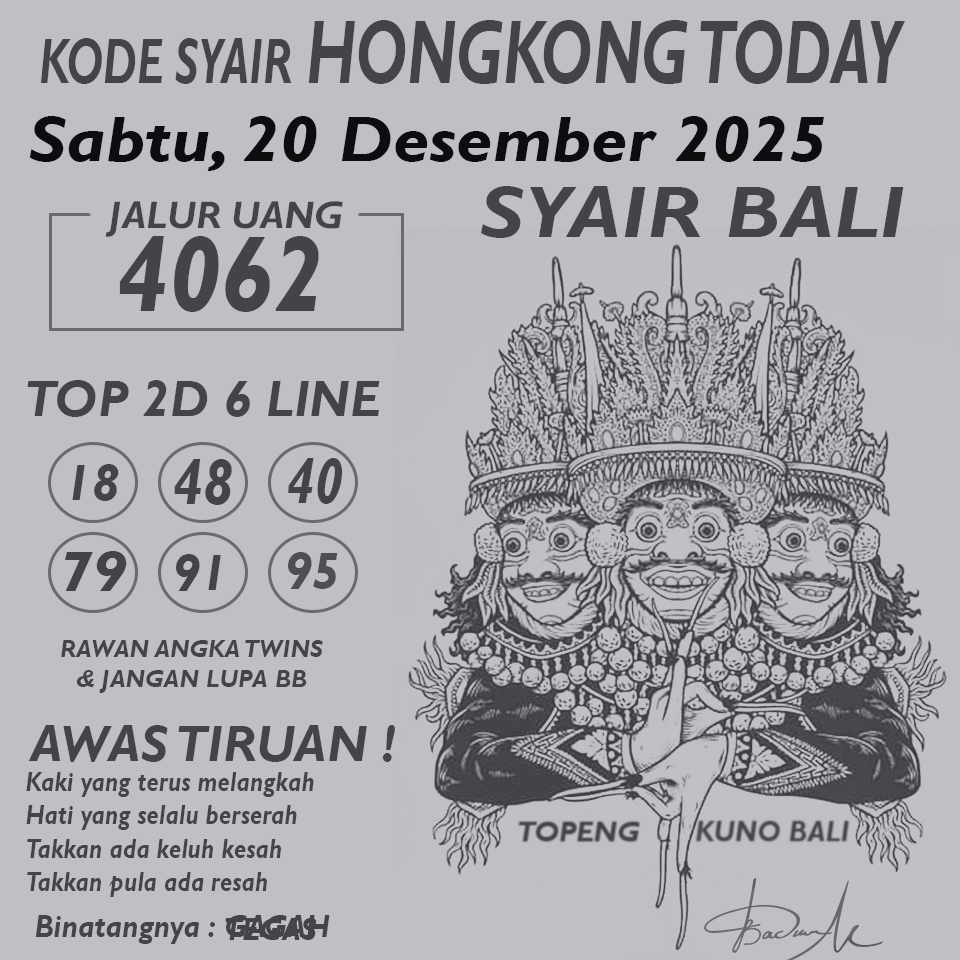 KODE SYAIR HONGKONG TODAY
Sabtu, 20 Desember 2025
SYAIR BALI
JALUR UANG
4062
TOP 2D 6 LINE
18 48 40
79 91 95
RAWAN ANGKA TWINS
& JANGAN LUPA BB
AWAS TIRUAN !
Kaki yang terus melangkah
Hati yang selalu berserah
Takkan ada keluh kesah
Takkan pula ada resah
Binatangnya : GAGAH
TEGAS
TOPENG KUNO BALI